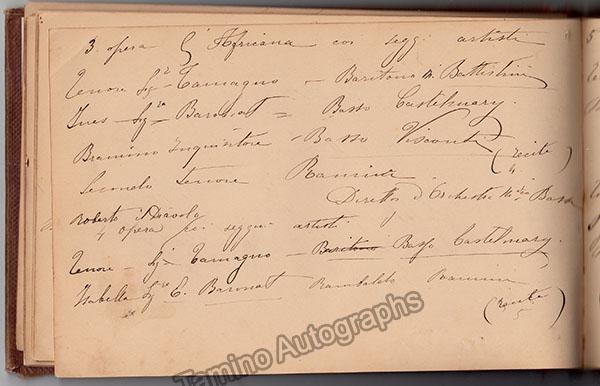 3. opera L'Africana coi segg. artisti
Tenore Sigr Tamagno – Baritono M. Battistini
Ines – Sigra Baronat = Basso Castelmary.
Bramino Inquisitore – Basso Visconti
Secondo tenore Ramini (recite 4)
Direttre d'Orchestra Mtro Bassi
Roberto il Diavolo
4 opera coi seggui artisti
Tenore Sigr Tamagno – Baritono Basso Castelmary.
Isabella Sigra E. Baronat Rambaldo Ramini
(recite 5)
Tamino Autographs